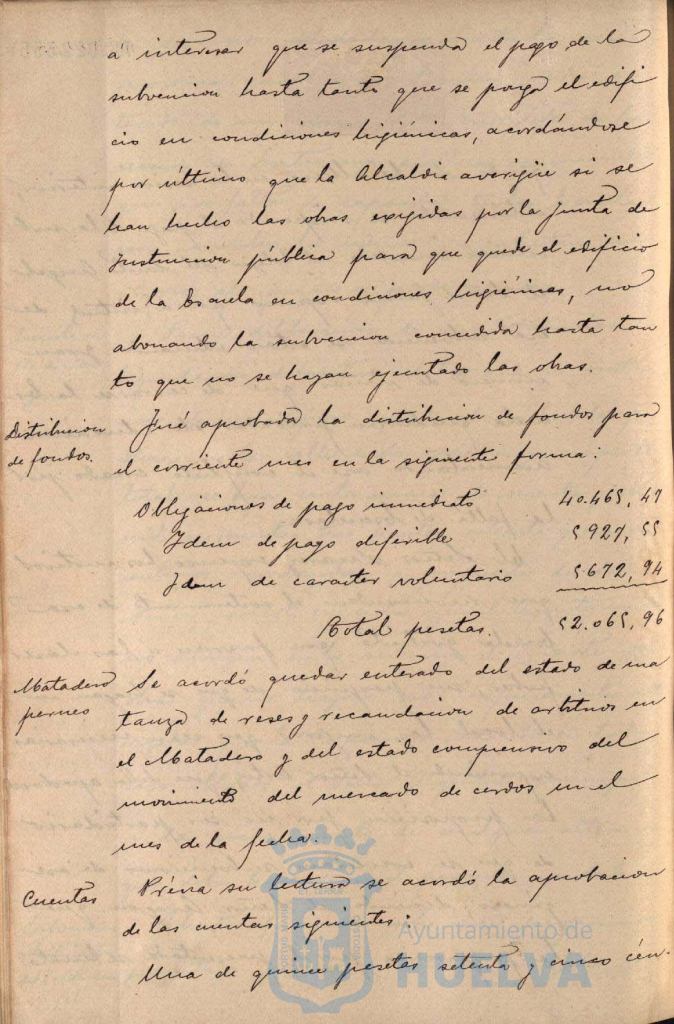 á interesar que se suspenda el pago de la
subvencion hasta tanto que se ponga el edifi
cio en condiciones higiénicas, acordándose
por último que la Alcaldia averigüe si se
han hecho las obras exijidas por la Junta de
Instruccion pública para que quede el edificio
de la Escuela en condiciones higiénicas, no
abonando la subvencion concedida hasta tan
to que no se hayan ejecutado las obras.
Distribucion
de fondos.
Fué aprobada la distribucion de fondos para
el corriente mes en la siguiente forma:
Obligaciones de pago inmediato 40.465,47
Idem de pago diferible 5927,55
Idem de caracter voluntario 5672,94
Total pesetas. 52.065,96
Matadero
perneo
Se acordó quedar enterado del estado de ma
tanza de reses y recaudacion de arbitrios en
el Matadero y del estado comprensivo del
movimiento del mercado de cerdos en el
mes de la fecha.
Cuentas
Prévia su lectura se acordó la aprobacion
de las cuentas siguientes:
Una de quince pesetas setenta y cinco cén-
Ayuntamiento de
HUELVA